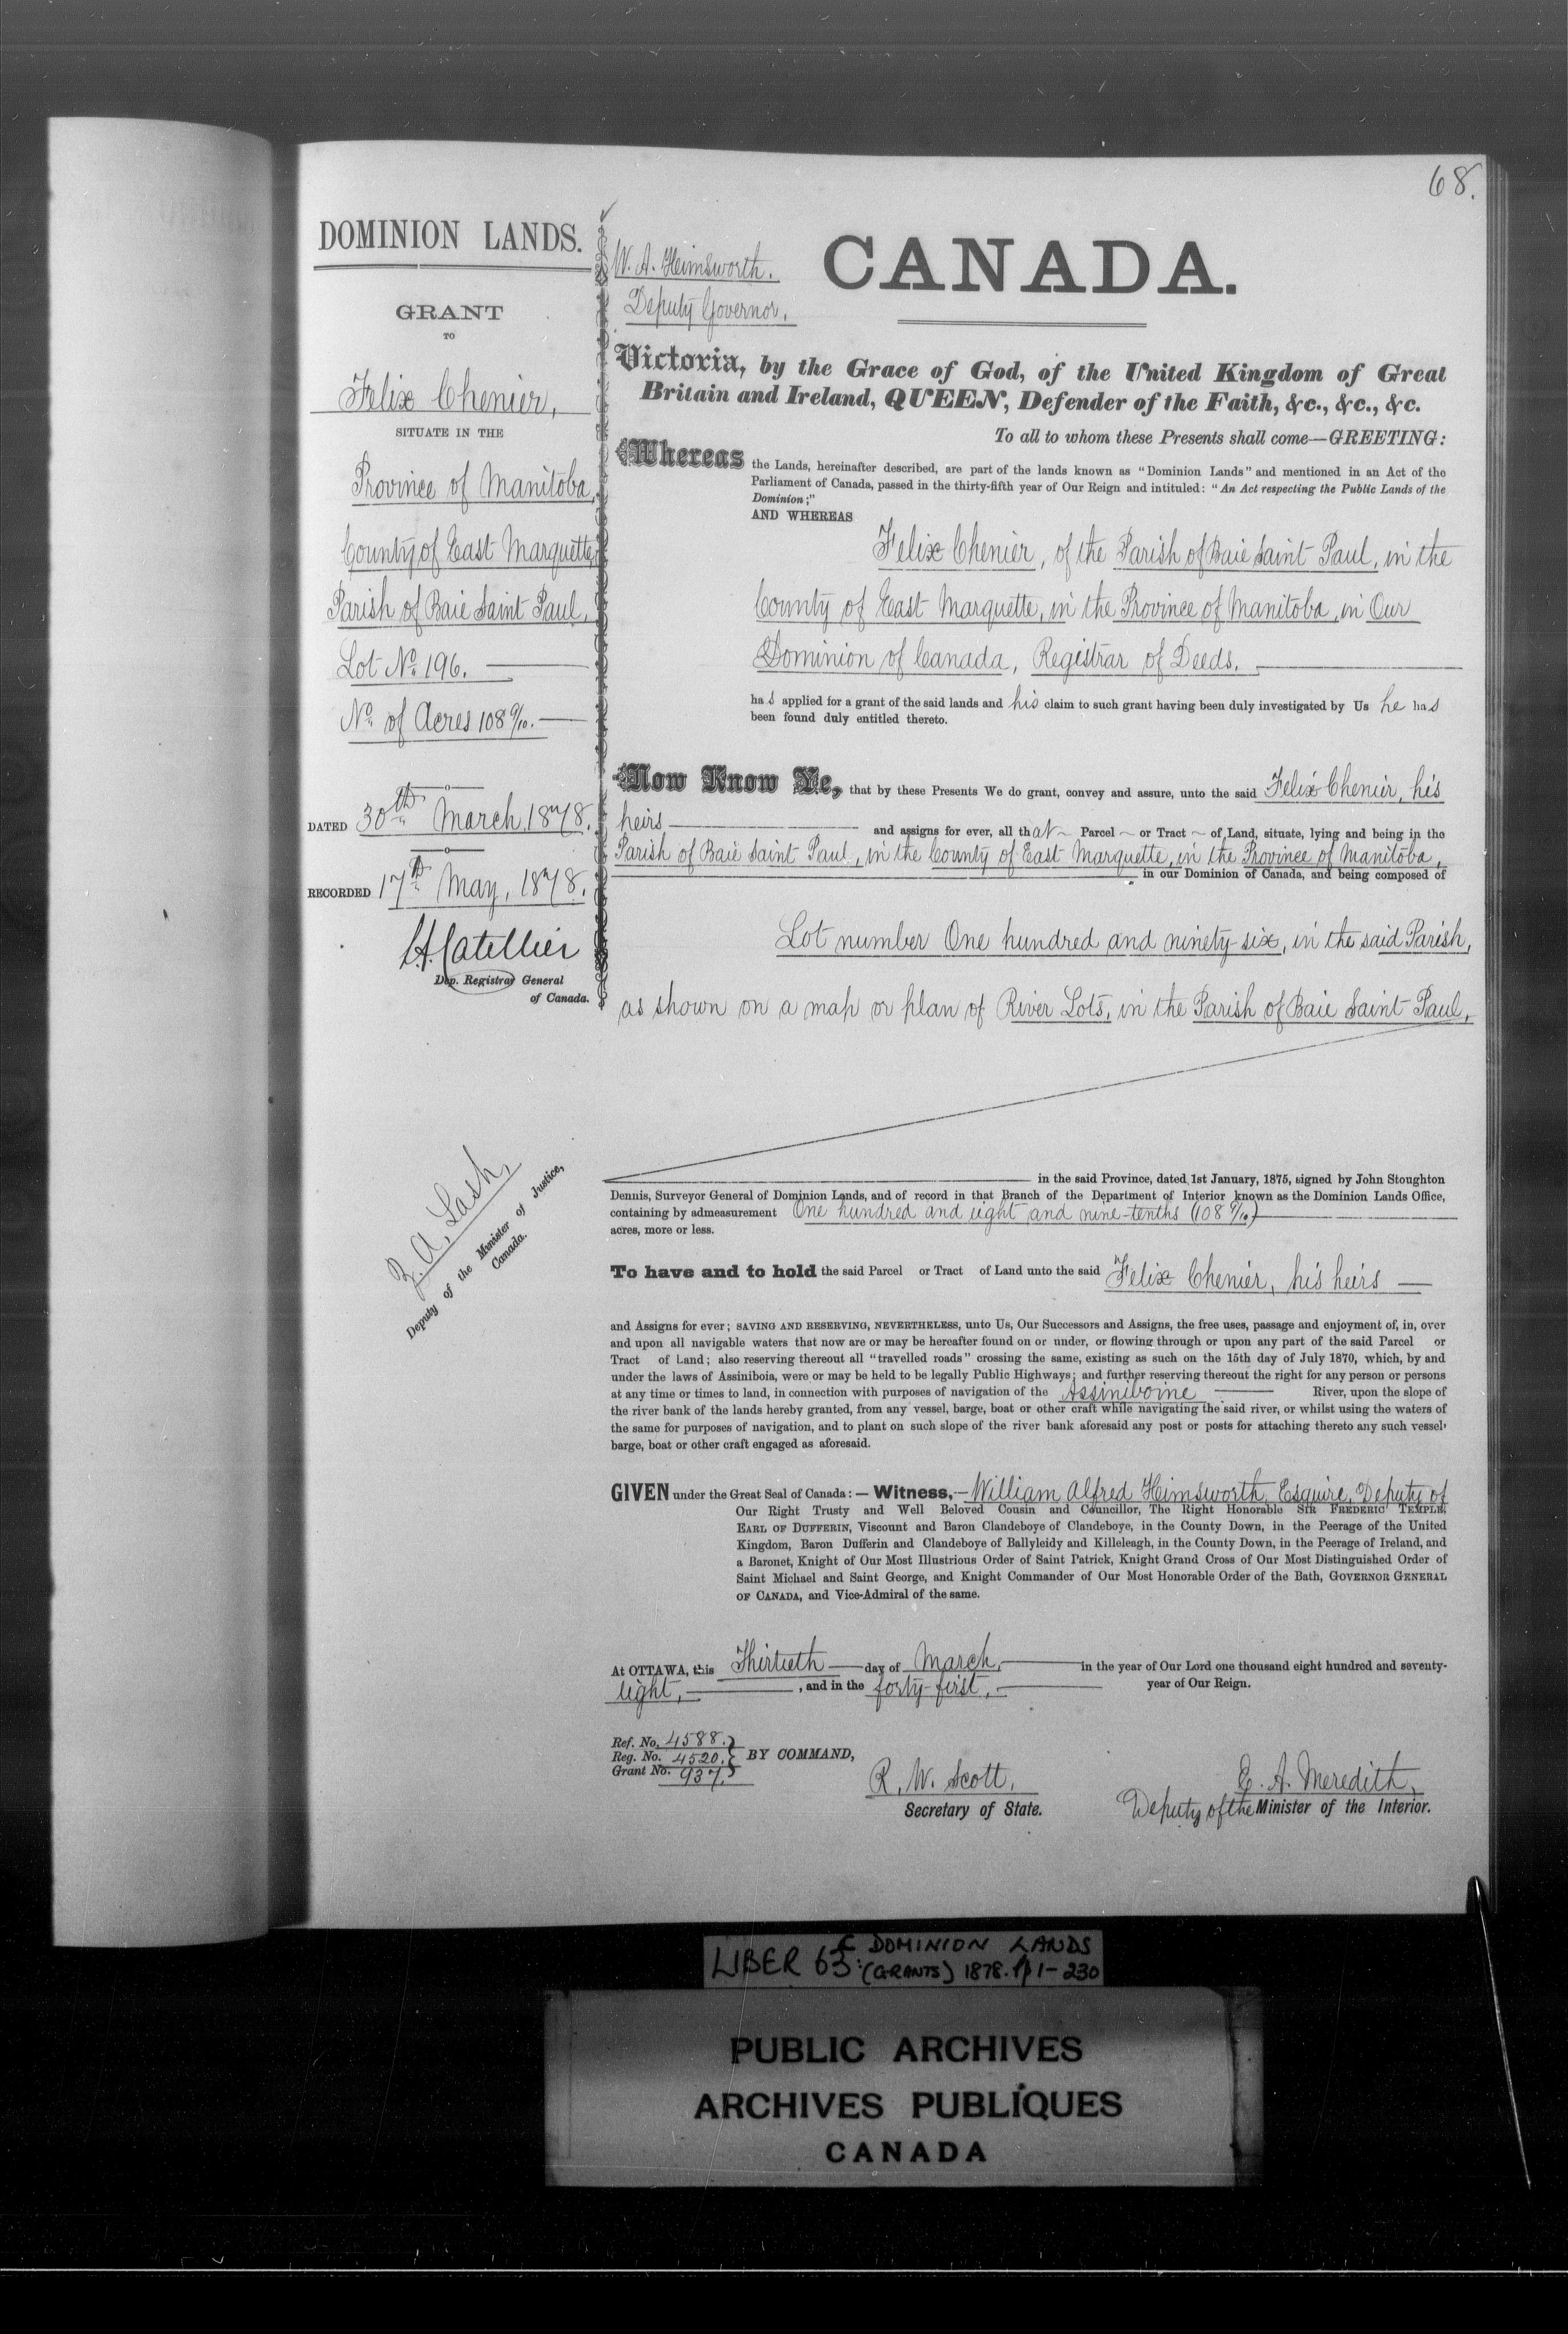 68.
DOMINION LANDS.
GRANT
TO
Felix Chenier,
SITUATE IN THE
Province of Manitoba,
County of East Marquette,
Parish of Baie Saint Paul,
Lot No. 196.
No. of Acres 108 9/10.
DATED 30th March, 1878.
RECORDED 17th May, 1878.
L.A. Catellier
Dep. Registrar General
of Canada.
Z. A. Lash,
Deputy of the Minister of Justice,
Canada.
W. A. Himsworth.
Deputy Governor.
CANADA.
Victoria, by the Grace of God, of the United Kingdom of Great
Britain and Ireland, QUEEN, Defender of the Faith, &c., &c., &c.
To all to whom these Presents shall come—GREETING:
Whereas the Lands, hereinafter described, are part of the lands known as "Dominion Lands" and mentioned in an Act of the
Parliament of Canada, passed in the thirty-fifth year of Our Reign and intituled: "An Act respecting the Public Lands of the
Dominion;"
AND WHEREAS
Felix Chenier, of the Parish of Baie Saint Paul, in the
County of East Marquette, in the Province of Manitoba, in Our
Dominion of Canada, Registrar of Deeds.
has applied for a grant of the said lands and his claim to such grant having been duly investigated by Us he has
been found duly entitled thereto.
Now Know Ye, that by these Presents We do grant, convey and assure, unto the said Felix Chenier, his
heirs and assigns for ever, all that Parcel or Tract of Land, situate, lying and being in the
Parish of Baie Saint Paul, in the County of East Marquette, in the Province of Manitoba,
in our Dominion of Canada, and being composed of
Lot number One hundred and ninety-six, in the said Parish,
as shown on a map or plan of River Lots, in the Parish of Baie Saint Paul,
in the said Province, dated 1st January, 1875, signed by John Stoughton
Dennis, Surveyor General of Dominion Lands, and of record in that Branch of the Department of Interior known as the Dominion Lands Office,
containing by admeasurement One hundred and eight and nine-tenths (108 9/10)
acres, more or less.
To have and to hold the said Parcel or Tract of Land unto the said Felix Chenier, his heirs
and Assigns for ever; SAVING AND RESERVING, NEVERTHELESS, unto Us, Our Successors and Assigns, the free uses, passage and enjoyment of, in, over
and upon all navigable waters that now are or may be hereafter found on or under, or flowing through or upon any part of the said Parcel or
Tract of Land; also reserving thereout all "travelled roads" crossing the same, existing as such on the 15th day of July 1870, which, by and
under the laws of Assiniboia, were or may be held to be legally Public Highways; and further reserving thereout the right for any person or persons
at any time or times to land, in connection with purposes of navigation of the Assiniboine River, upon the slope of
the river bank of the lands hereby granted, from any vessel, barge, boat or other craft while navigating the said river, or whilst using the waters of
the same for purposes of navigation, and to plant on such slope of the river bank aforesaid any post or posts for attaching thereto any such vessel,
barge, boat or other craft engaged as aforesaid.
GIVEN under the Great Seal of Canada: — Witness,— William Alfred Himsworth, Esquire, Deputy of
Our Right Trusty and Well Beloved Cousin and Councillor, The Right Honorable SIR FREDERIC TEMPLE,
EARL OF DUFFERIN, Viscount and Baron Clandeboye of Clandeboye, in the County Down, in the Peerage of the United
Kingdom, Baron Dufferin and Clandeboye of Ballyleidy and Killeleagh, in the County Down, in the Peerage of Ireland, and
a Baronet, Knight of Our Most Illustrious Order of Saint Patrick, Knight Grand Cross of Our Most Distinguished Order of
Saint Michael and Saint George, and Knight Commander of Our Most Honorable Order of the Bath, GOVERNOR GENERAL
OF CANADA, and Vice-Admiral of the same.
At OTTAWA, this Thirtieth day of March, in the year of Our Lord one thousand eight hundred and seventy-
eight, , and in the forty-first, year of Our Reign.
Ref. No. 4588.
Reg. No. 4520. BY COMMAND,
Grant No. 937.
R. W. Scott,
Secretary of State.
E. A. Meredith,
Deputy of the Minister of the Interior.
LIBER 63: C DOMINION LANDS
(GRANTS) 1878. pp 1-230
PUBLIC ARCHIVES
ARCHIVES PUBLIQUES
CANADA